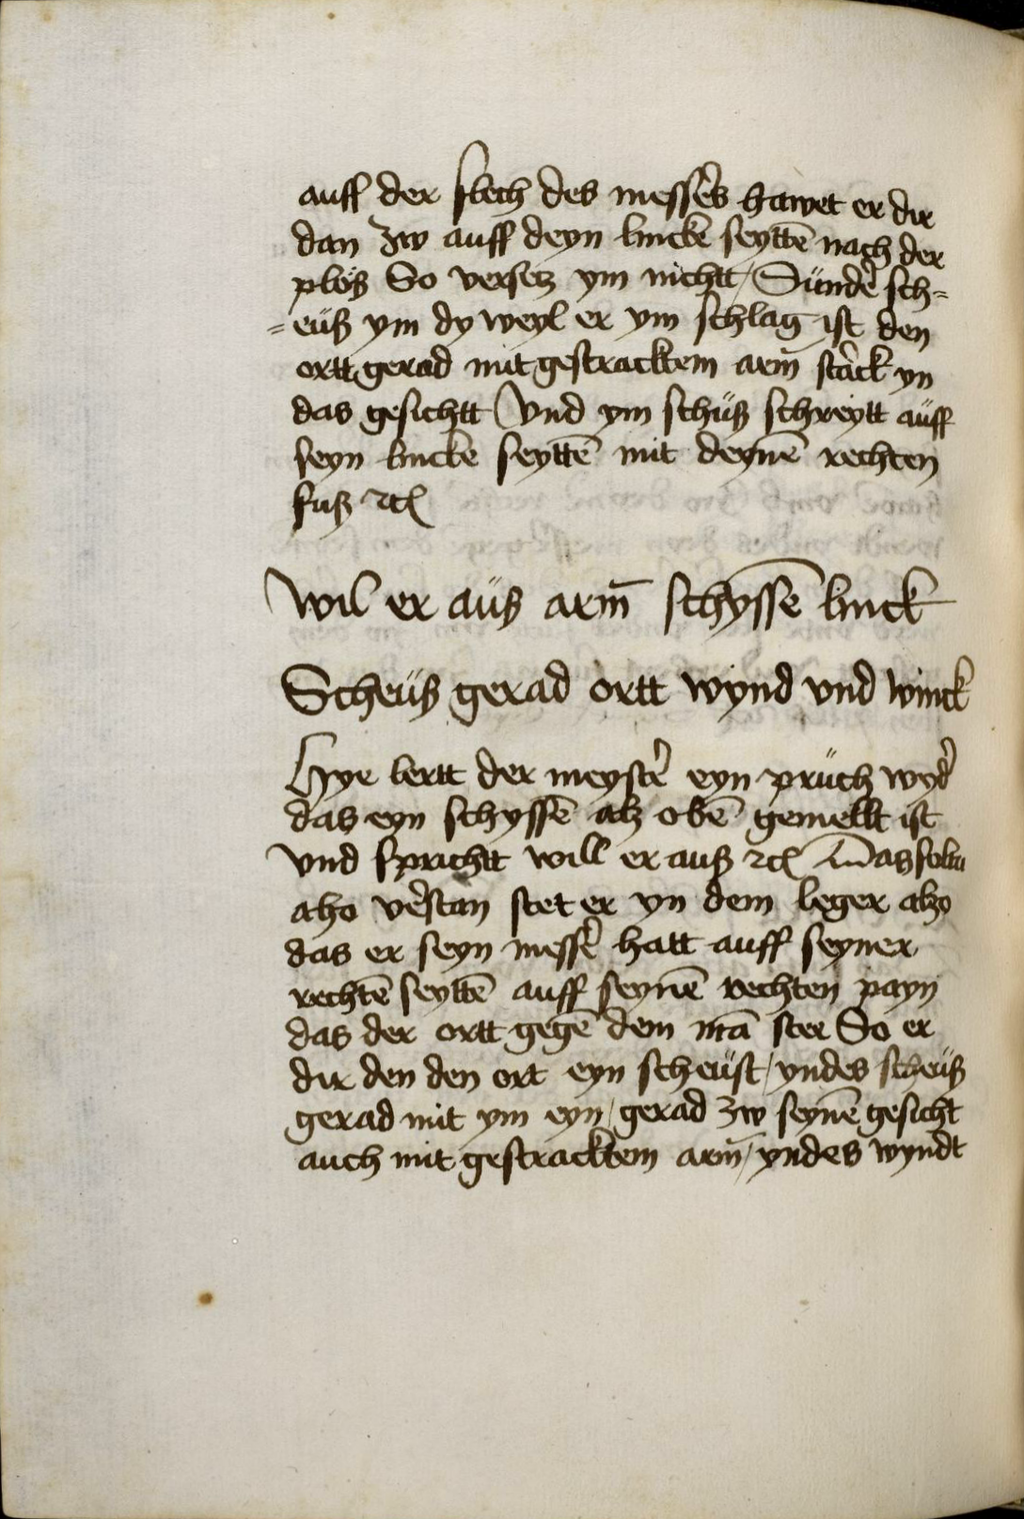 auff der flech des messe͛s hawet er dir
dan zw auff deyn lincke seyttē nach der
plöß So versetz ym nichtt / Sünde͛ sch=
=eüß ym dy weyl er ym schlag ist den
ortt gerad mit gestracktem arm̄ sta͛ck yn
das gesichtt Vnd ym schüß schreytt aüff
seyn lincke seyttē mit deynē rechten
fuß ⁊cꝭ
Wil er aüß arm̄ schyssē linck
Scheüß gerad ortt wynd vnd winck
Hye lertt der meyste͛ eyn prüch wyd͛
das eyn schyssē alz obē gemellt ist
Vnd sprichtt will er auß ⁊cꝭ Das soltu
alzo ve͛stan stet er yn dem leger alzo
das er seyn messe͛ hatt auff seyner
rechtē seyttē auff seynē rechten payn
das der ortt gegē dem mā stee So er
dir den den ort eyn scheüst / yndes scheüß
gerad mit ym eyn / gerad zw seynē gesicht
auch mit gestracktem arm̄ / yndes wyndt